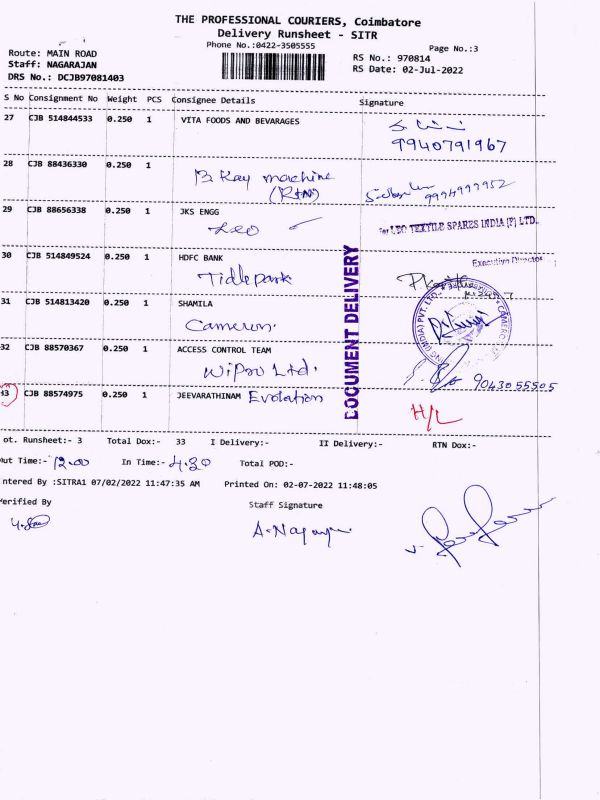 THE PROFESSIONAL COURIERS, Coimbatore
Delivery Runsheet - SITR
Phone No.:0422-3505555
Page No.:3
Route: MAIN ROAD
RS No.: 970814
Staff: NAGARAJAN
RS Date: 02-Jul-2022
DRS No.: DCJB97081403
S No Consignment No Weight PCS Consignee Details Signature
27 CJB 514844533 0.250 1 VITA FOODS AND BEVARAGES
9940791967
28 CJB 88436330 0.250 1
Machine
9994999952
29 CJB 88656338 0.250 1 JKS ENGG
Leo
For LEO TEXTILE SPARES INDIA [P] LTD.
30 CJB 514849524 0.250 1 HDFC BANK
Executive Director
Tidle park
31 CJB 514813420 0.250 1 SHAMILA
Cameron.
32 CJB 88570367 0.250 1 ACCESS CONTROL TEAM
Wipro Ltd.
9043055505
33 CJB 88574975 0.250 1 JEEVARATHINAM Evolation
H/L
DOCUMENT DELIVERY
ot. Runsheet:- 3 Total Dox:- 33 I Delivery:- II Delivery:- RTN Dox:-
Out Time:- 12.00 In Time:- 4.30 Total POD:-
ntered By :SITRA1 07/02/2022 11:47:35 AM Printed On: 02-07-2022 11:48:05
Verified By Staff Signature